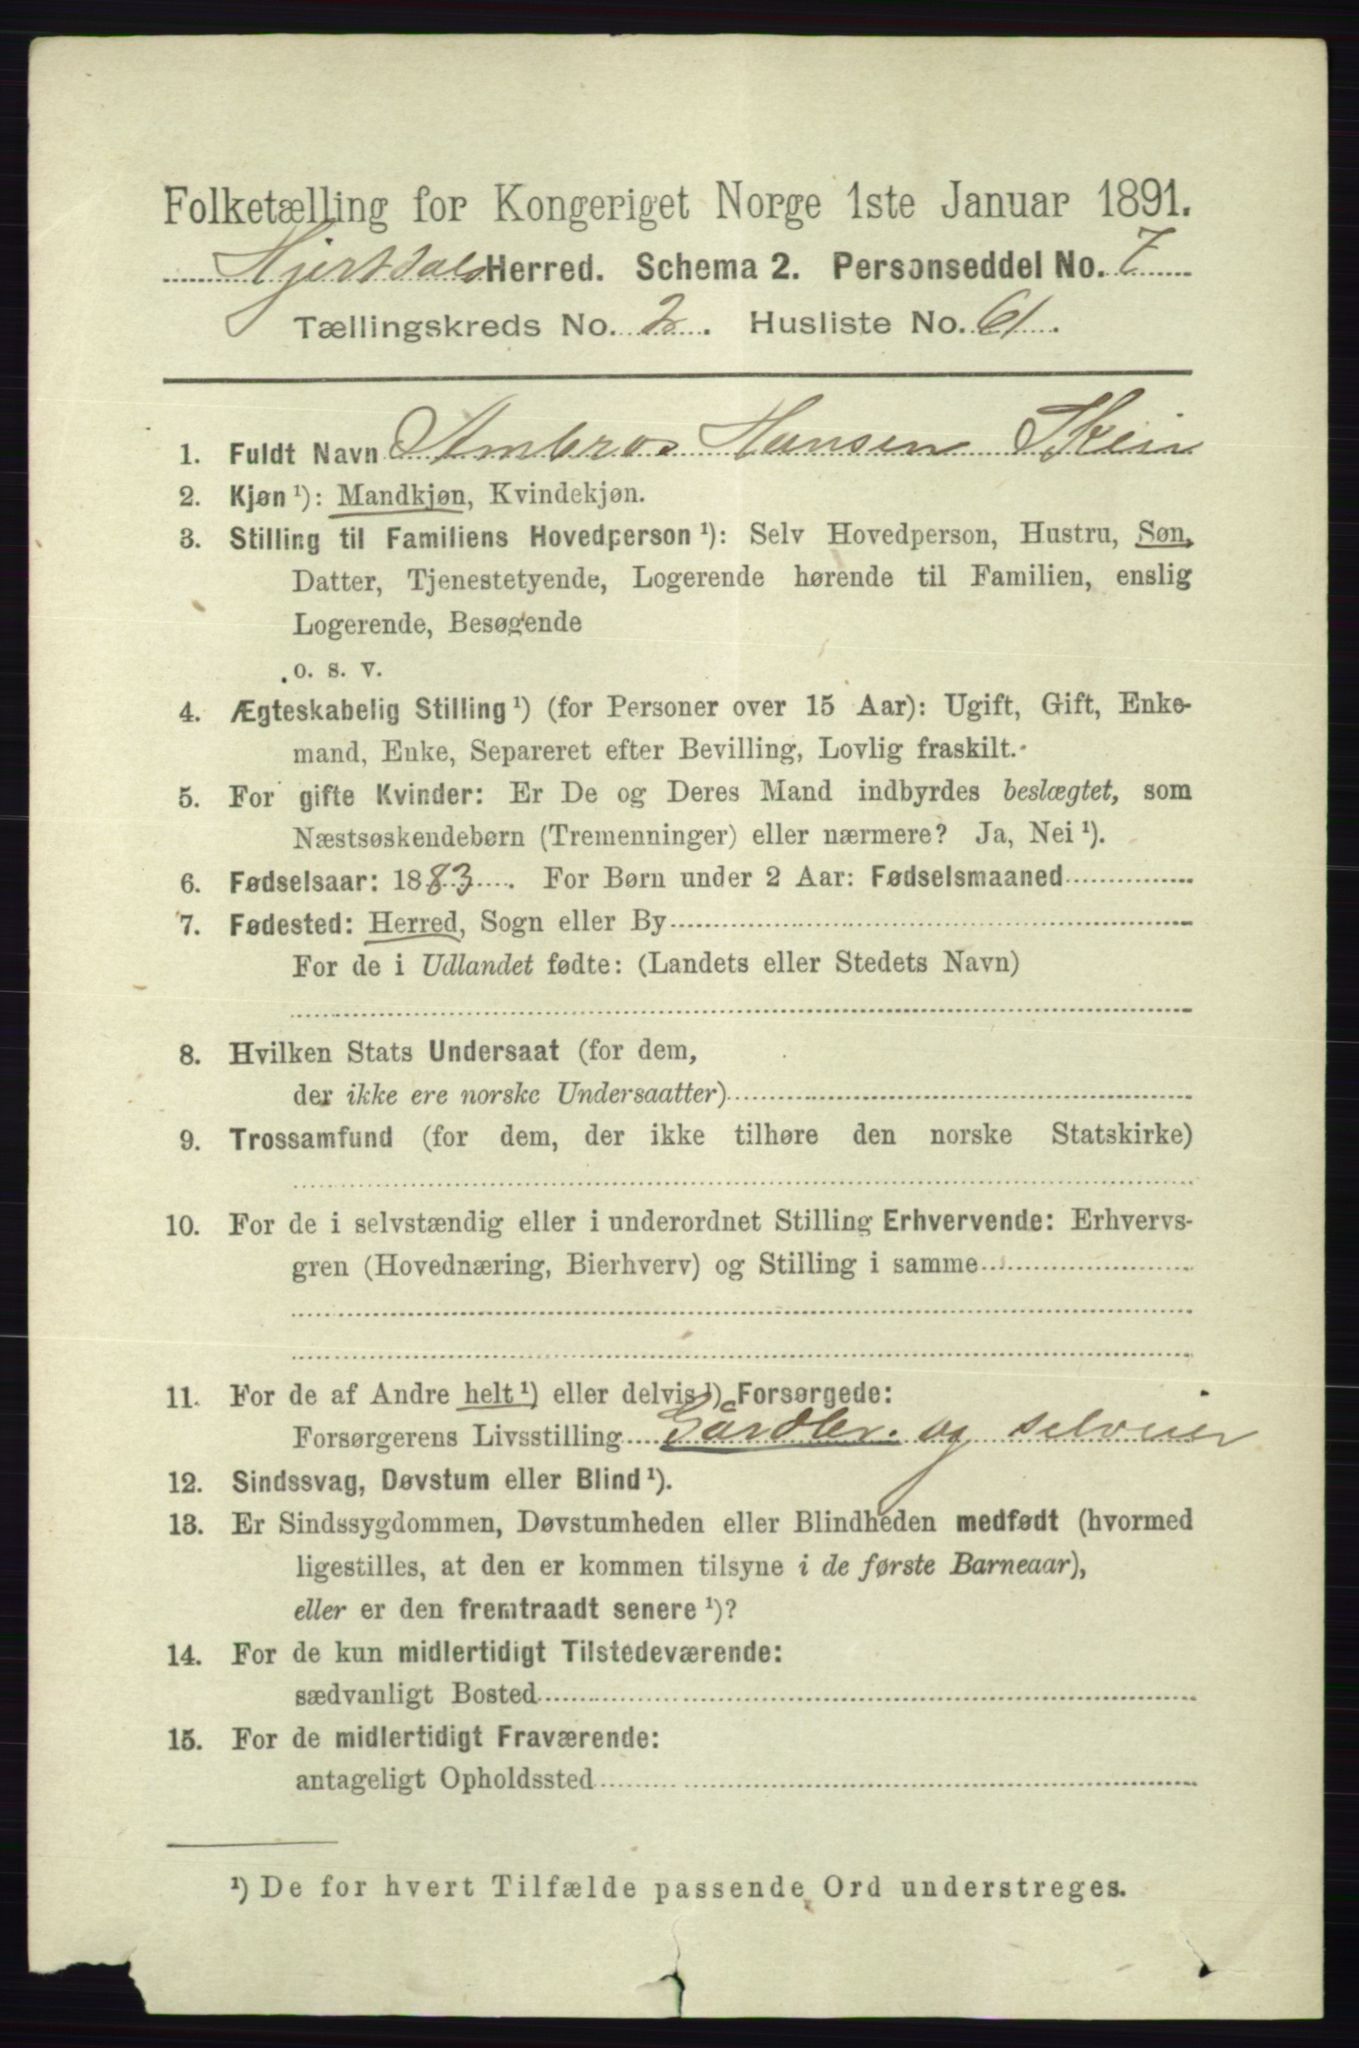 Folketælling for Kongeriget Norge 1ste Januar 1891.
Hjertdals Herred. Schema 2. Personseddel No. 7
Tællingskreds No. 2. Husliste No. 61.
1. Fuldt Navn Ambros Hansen Skeie
2. Kjøn ¹): Mandkjøn, Kvindekjøn.
3. Stilling til Familiens Hovedperson ¹): Selv Hovedperson, Hustru, Søn,
Datter, Tjenestetyende, Logerende hørende til Familien, enslig
Logerende, Besøgende
o. s. v.
4. Ægteskabelig Stilling ¹) (for Personer over 15 Aar): Ugift, Gift, Enke-
mand, Enke, Separeret efter Bevilling, Lovlig fraskilt.
5. For gifte Kvinder: Er De og Deres Mand indbyrdes beslægtet, som
Næstsøskendebørn (Tremenninger) eller nærmere? Ja, Nei ¹).
6. Fødselsaar: 1883. For Børn under 2 Aar: Fødselsmaaned
7. Fødested: Herred, Sogn eller By
For de i Udlandet fødte: (Landets eller Stedets Navn)
8. Hvilken Stats Undersaat (for dem,
der ikke ere norske Undersaatter)
9. Trossamfund (for dem, der ikke tilhøre den norske Statskirke)
10. For de i selvstændig eller i underordnet Stilling Erhvervende: Erhvervs-
gren (Hovednæring, Bierhverv) og Stilling i samme
11. For de af Andre helt ¹) eller delvis ¹) Forsørgede:
Forsørgerens Livsstilling Gårdbr. og selveier
12. Sindssvag, Døvstum eller Blind ¹).
13. Er Sindssygdommen, Døvstumheden eller Blindheden medfødt (hvormed
ligestilles, at den er kommen tilsyne i de første Barneaar),
eller er den fremtraadt senere ¹)?
14. For de kun midlertidigt Tilstedeværende:
sædvanligt Bosted
15. For de midlertidigt Fraværende:
antageligt Opholdssted
¹) De for hvert Tilfælde passende Ord understreges.